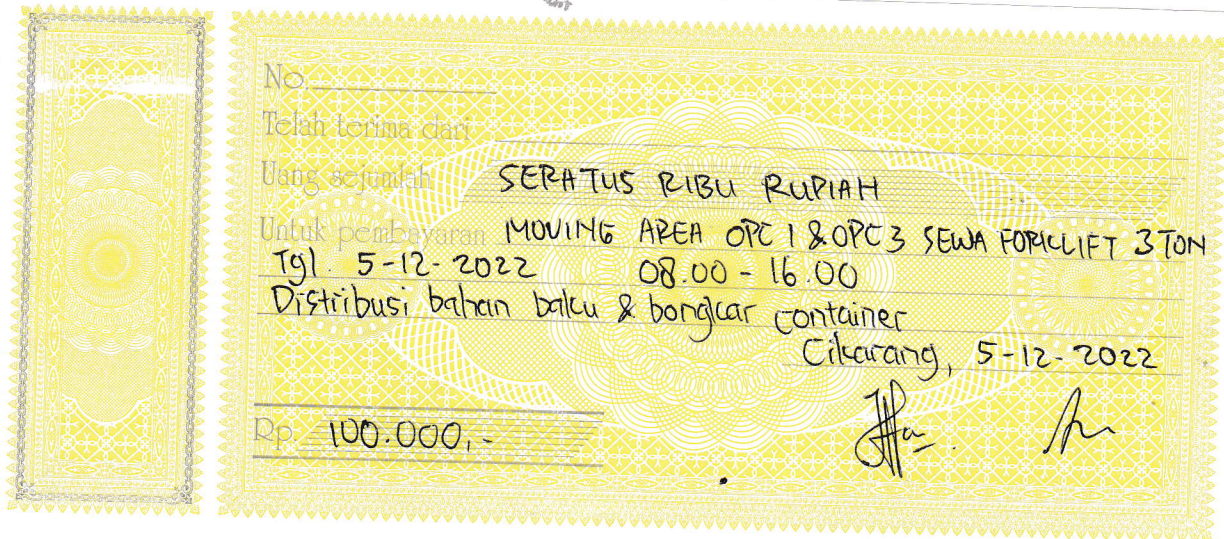 No.
Telah terima dari
Uang sejumlah SERATUS RIBU RUPIAH
Untuk pembayaran MOVING AREA OPC 1 & OPC 3 SEWA FORKLIFT 3 TON
Tgl. 5-12-2022 08.00 - 16.00
Distribusi bahan baku & bongkar container
Cikarang, 5-12-2022
Rp. 100.000,-